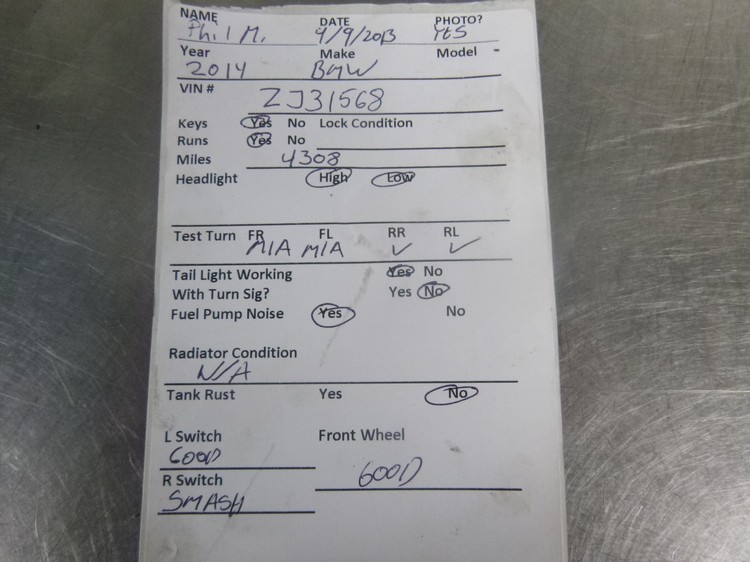 NAME DATE PHOTO?
Phil M. 9/9/2013 YES
Year Make Model -
2014 BMW
VIN # ZJ31568
Keys Yes No Lock Condition
Runs Yes No
Miles 4308
Headlight High Low
Test Turn FR FL RR RL
MIA MIA ✓ ✓
Tail Light Working Yes No
With Turn Sig? Yes No
Fuel Pump Noise Yes No
Radiator Condition
N/A
Tank Rust Yes No
L Switch Front Wheel
GOOD
R Switch GOOD
SMASH